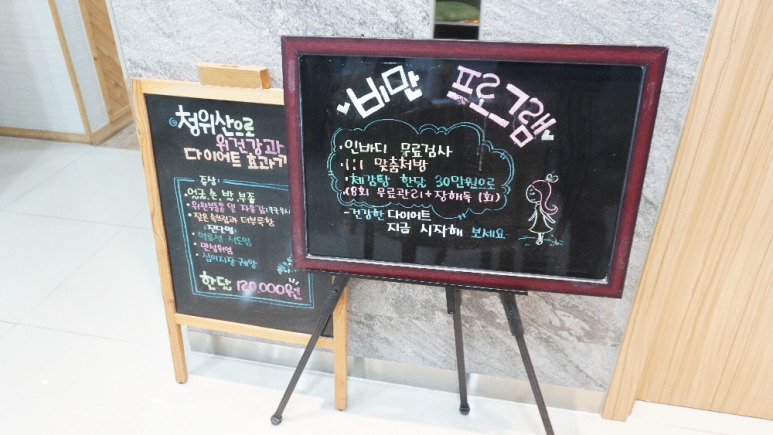 청위산으로
위건강과
다이어트 효과가
증상:
• 얼굴, 손, 발 부종
• 잦은 속쓰림과 더부룩함
(진단명:
• 역류성 식도염
• 만성위염
한달 120,000원
비만 프로그램
• 인바디 무료검사
• 1:1 맞춤처방
• 체감탕 한달 30만원으로
(8회 무료관리 + 장해독 1회)
- 건강한 다이어트
지금 시작해 보세요